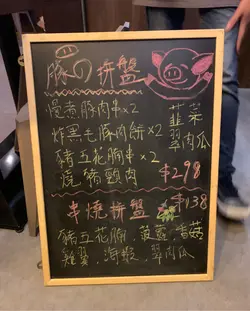 豚の拼盤
慢煮豚肉串×2 韮菜
炸黑毛豚肉餅×2 翠肉瓜
豬五花腩串×2
燒豬頸肉 $298
串燒拼盤 $138
豬五花腩,菠蘿,香菇
雞翼,海蝦,翠肉瓜